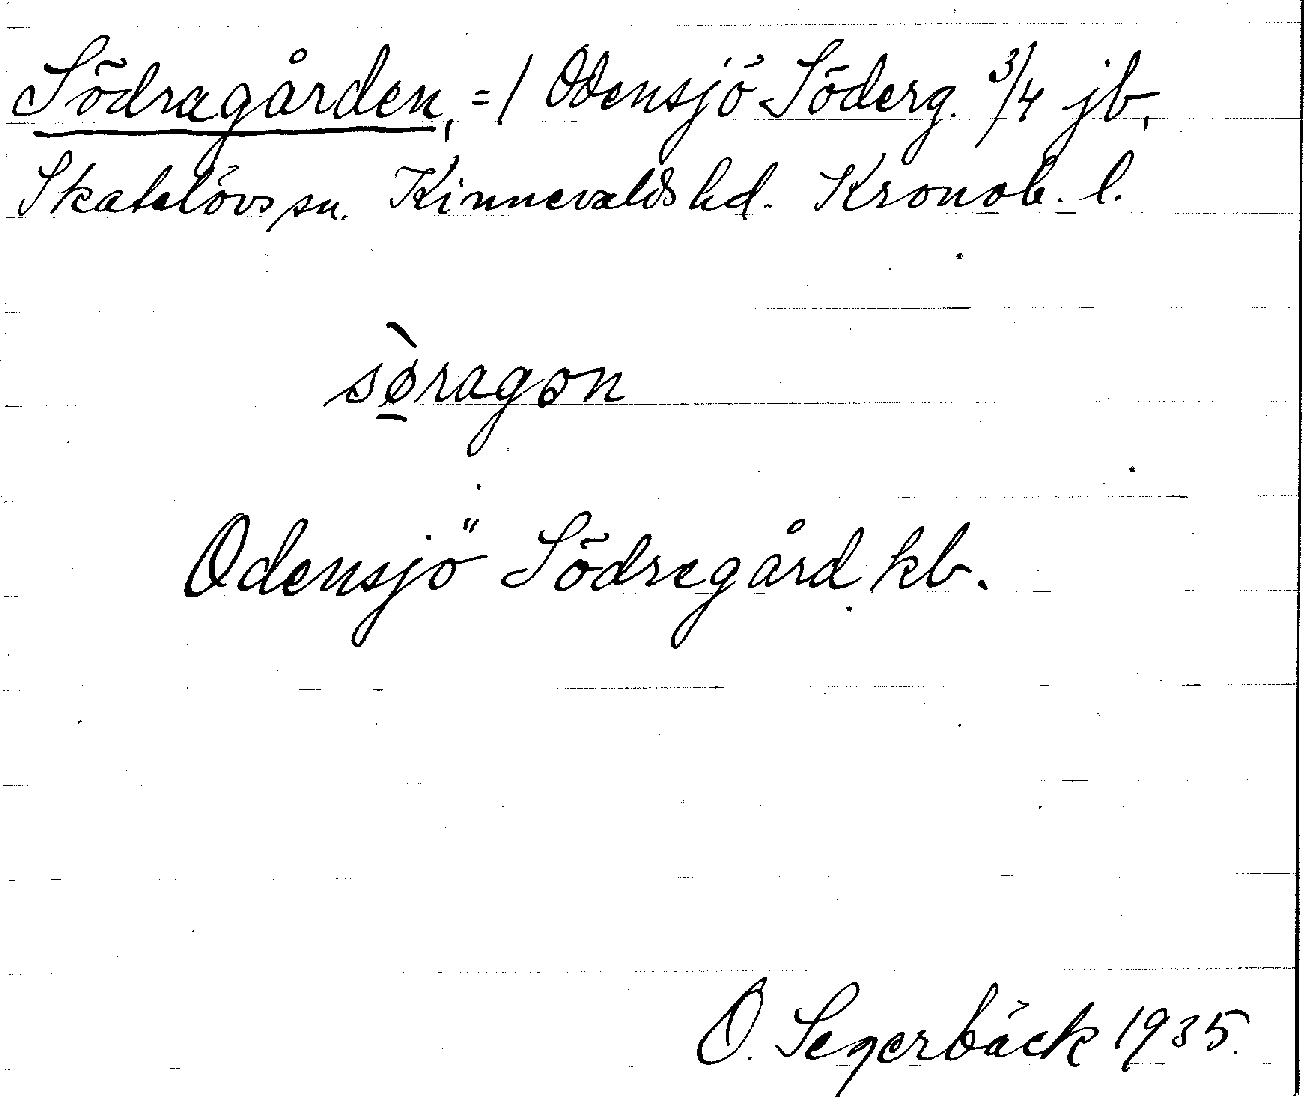 Södragården, =/ Odensjö Söderg. 3/4 jb,
Skatelövs sn. Kinnevalds hd. Kronob. l.
sø̀ragɔn
Odensjö Södregård kb.
O. Segerbäck 1935.